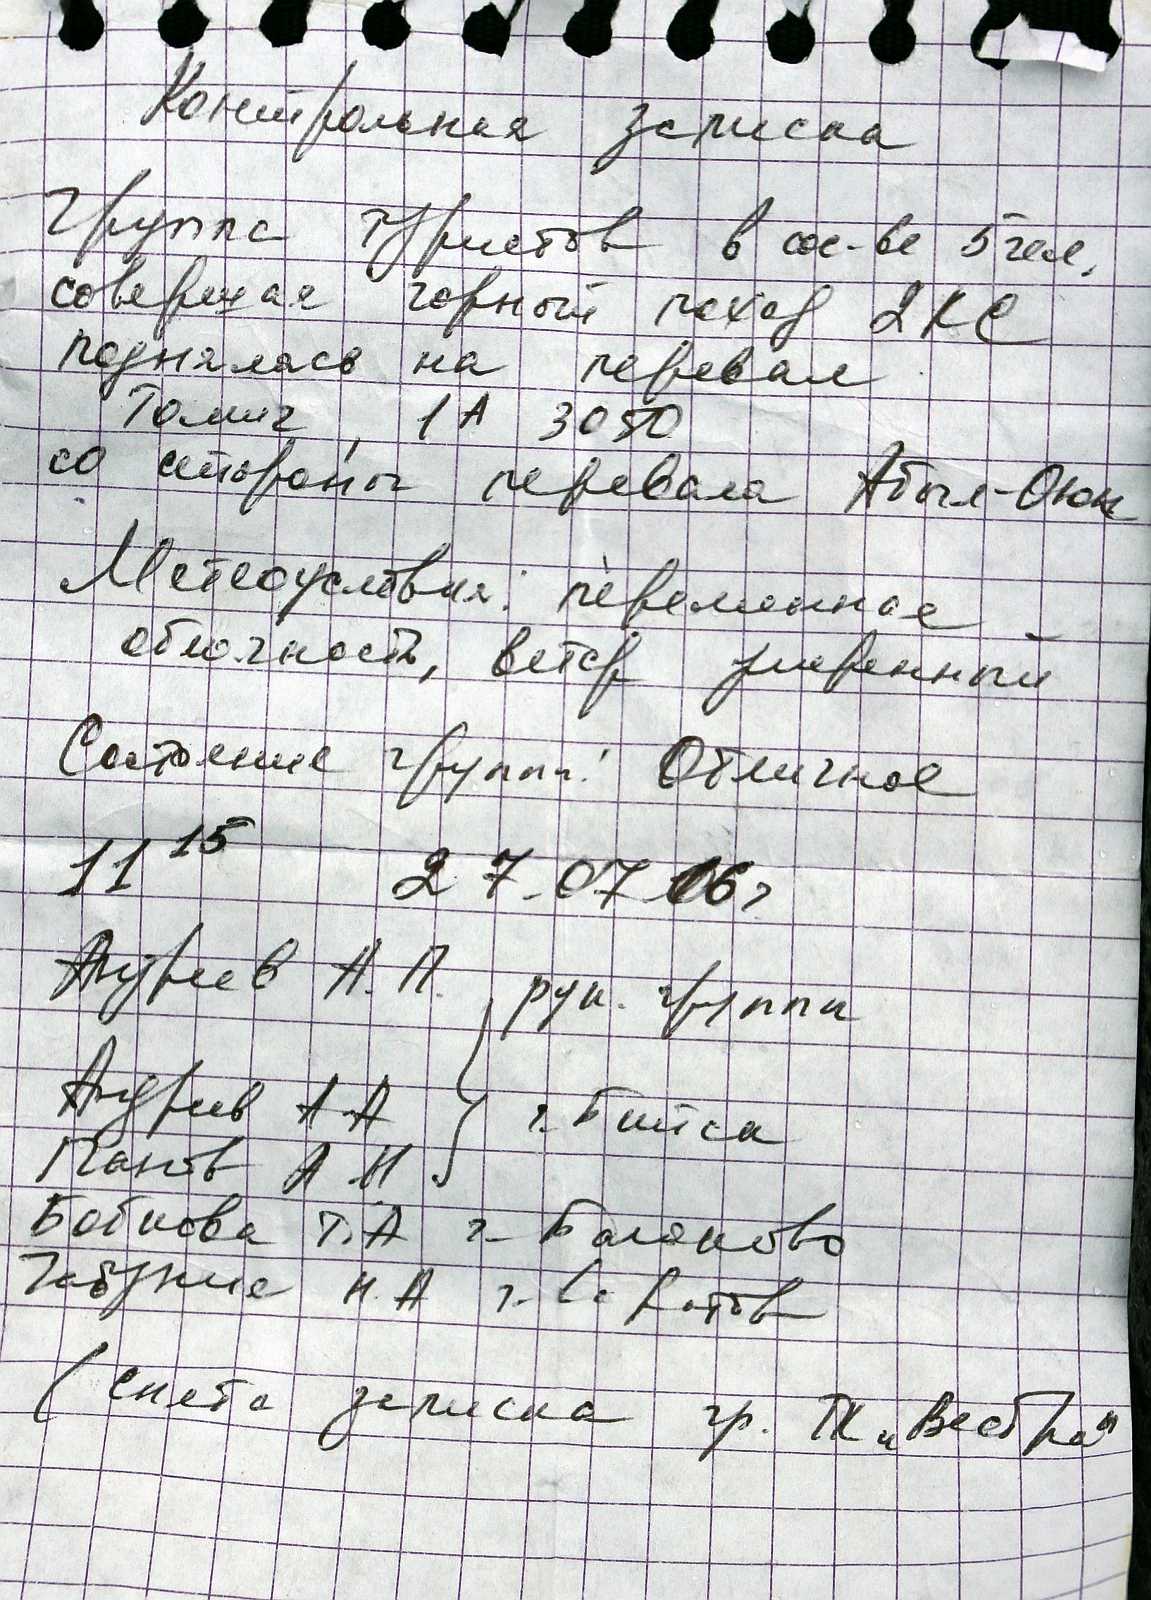 Контрольная записка
Группа туристов в сос-ве 5 чел.
совершая горный поход 2 КС
поднялась на перевал
Томич 1А 3050
со стороны перевала Абыл-Оюк
Метеоусловия: переменная
облочность, ветер умеренный
Состояние группы: Отличное
11 15 27.07 06г
Андреев А.П. рук. группы
Андреев А А г. Бийск
Панов А Н
Бобкова Т.А г. Балаково
Н.А г. Саратов
(снята записка гр. ТК "